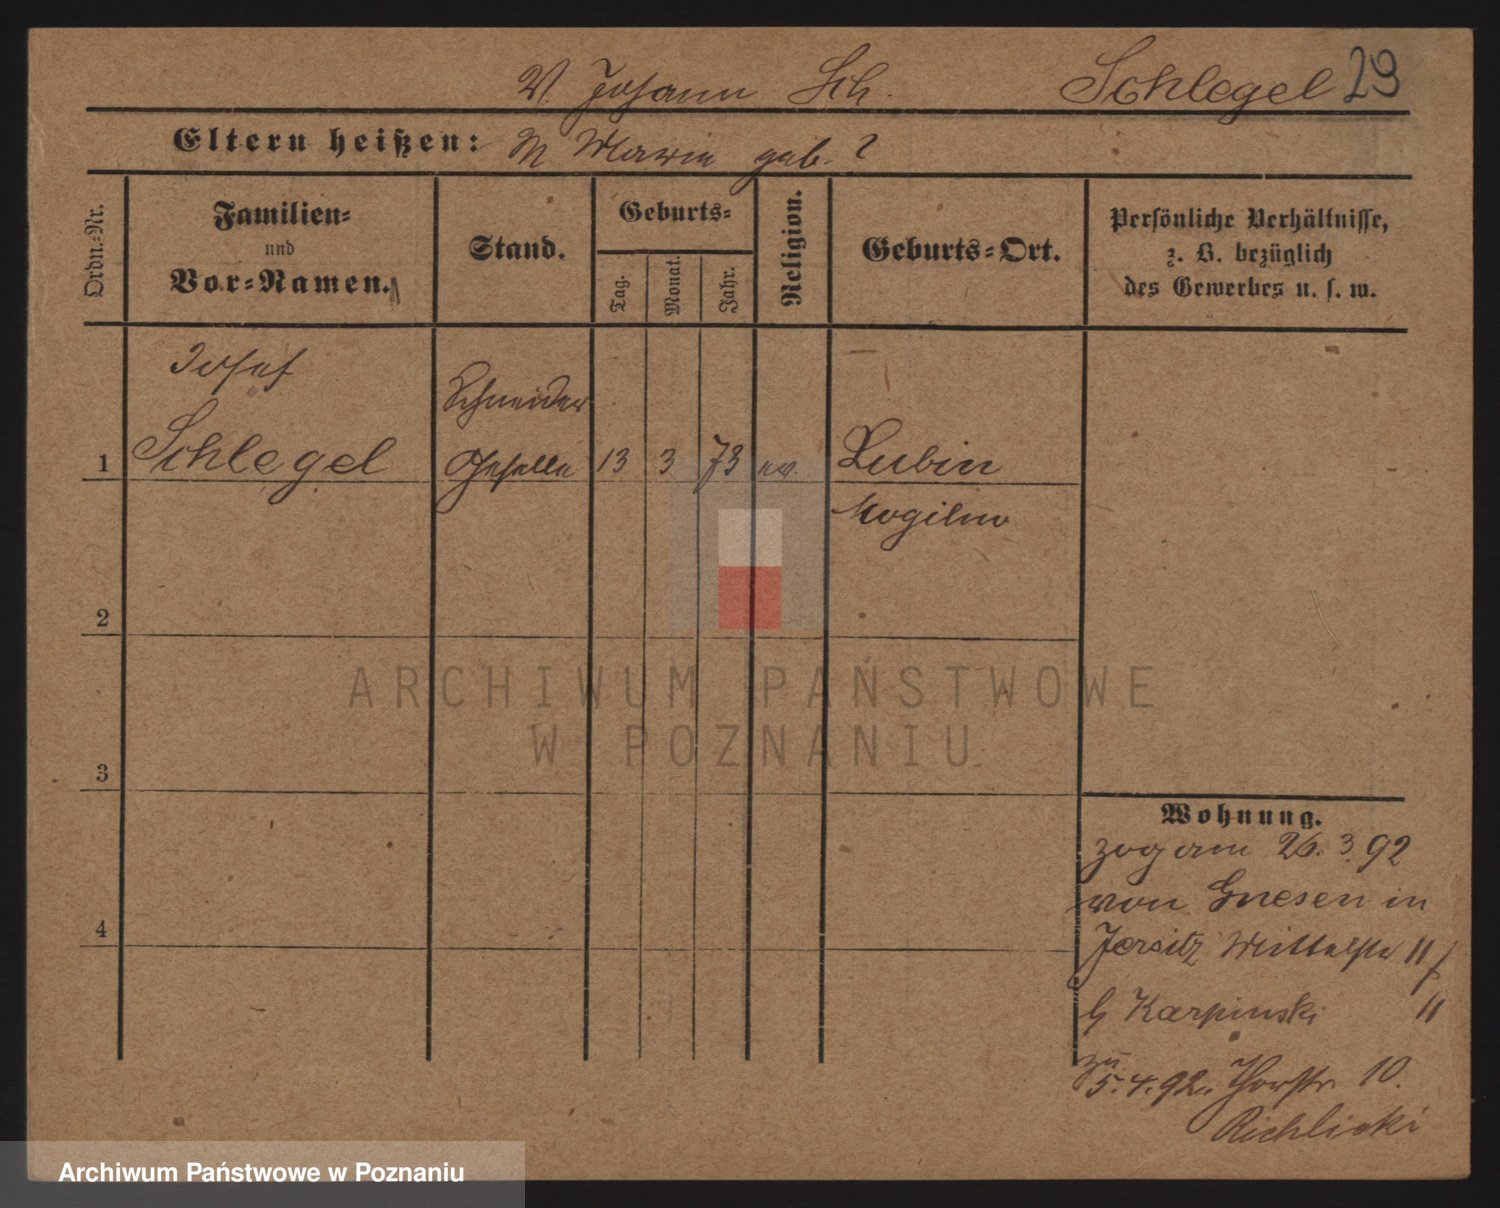 V. Johann Sch. Schlegel 29
Eltern heißen: M Marie geb. ?
Ordn.=Nr.
Familien=
und
Vor=Namen.
Stand.
Geburts=
Tag.
Monat.
Jahr.
Religion.
Geburts=Ort.
Persönliche Verhältnisse,
z. B. bezüglich
des Gewerbes u. s. w.
Josef
Schneider
1 Schlegel Geselle 13 3 73 ev. Lubin
Mogilno
2
3
4
Wohnung.
zog am 26. 3. 92
von Gnesen in
Jersitz Mittelstr 11
b Karpinski "
zu
5.4.92. Thorstr. 10.
Richlicki
ARCHIWUM PAŃSTWOWE
W POZNANIU
Archiwum Państwowe w Poznaniu